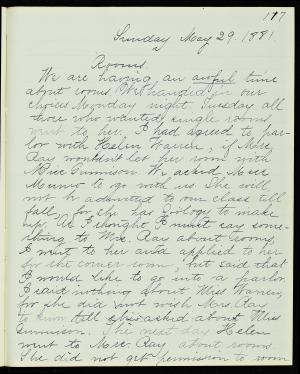 117
Sunday May 29. 1881.
Rooms.
We are having an awful time
about rooms. We handed in our
choices Monday night Tuesday all
those who wanted single rooms
went to her. I had agreed to par-
lor with Helen Warren, if Mrs.
Ray wouldn't let her room with
Miss Gunnison. We asked Miss
Munro to go with us. She will
not be admitted to our class till
fall, for she has Zoology to make
up. As I thought I must say some-
thing to Mrs. Ray about rooms,
I went to her and applied to her
for the corner room, but said that
I would like to go into a parlor.
I said nothing about Miss Warren,
for she did not wish Mrs. Ray
to know till she asked about Miss
Gunnison. The next day Helen
went to Mrs. Ray about rooms
She did not get permission to room